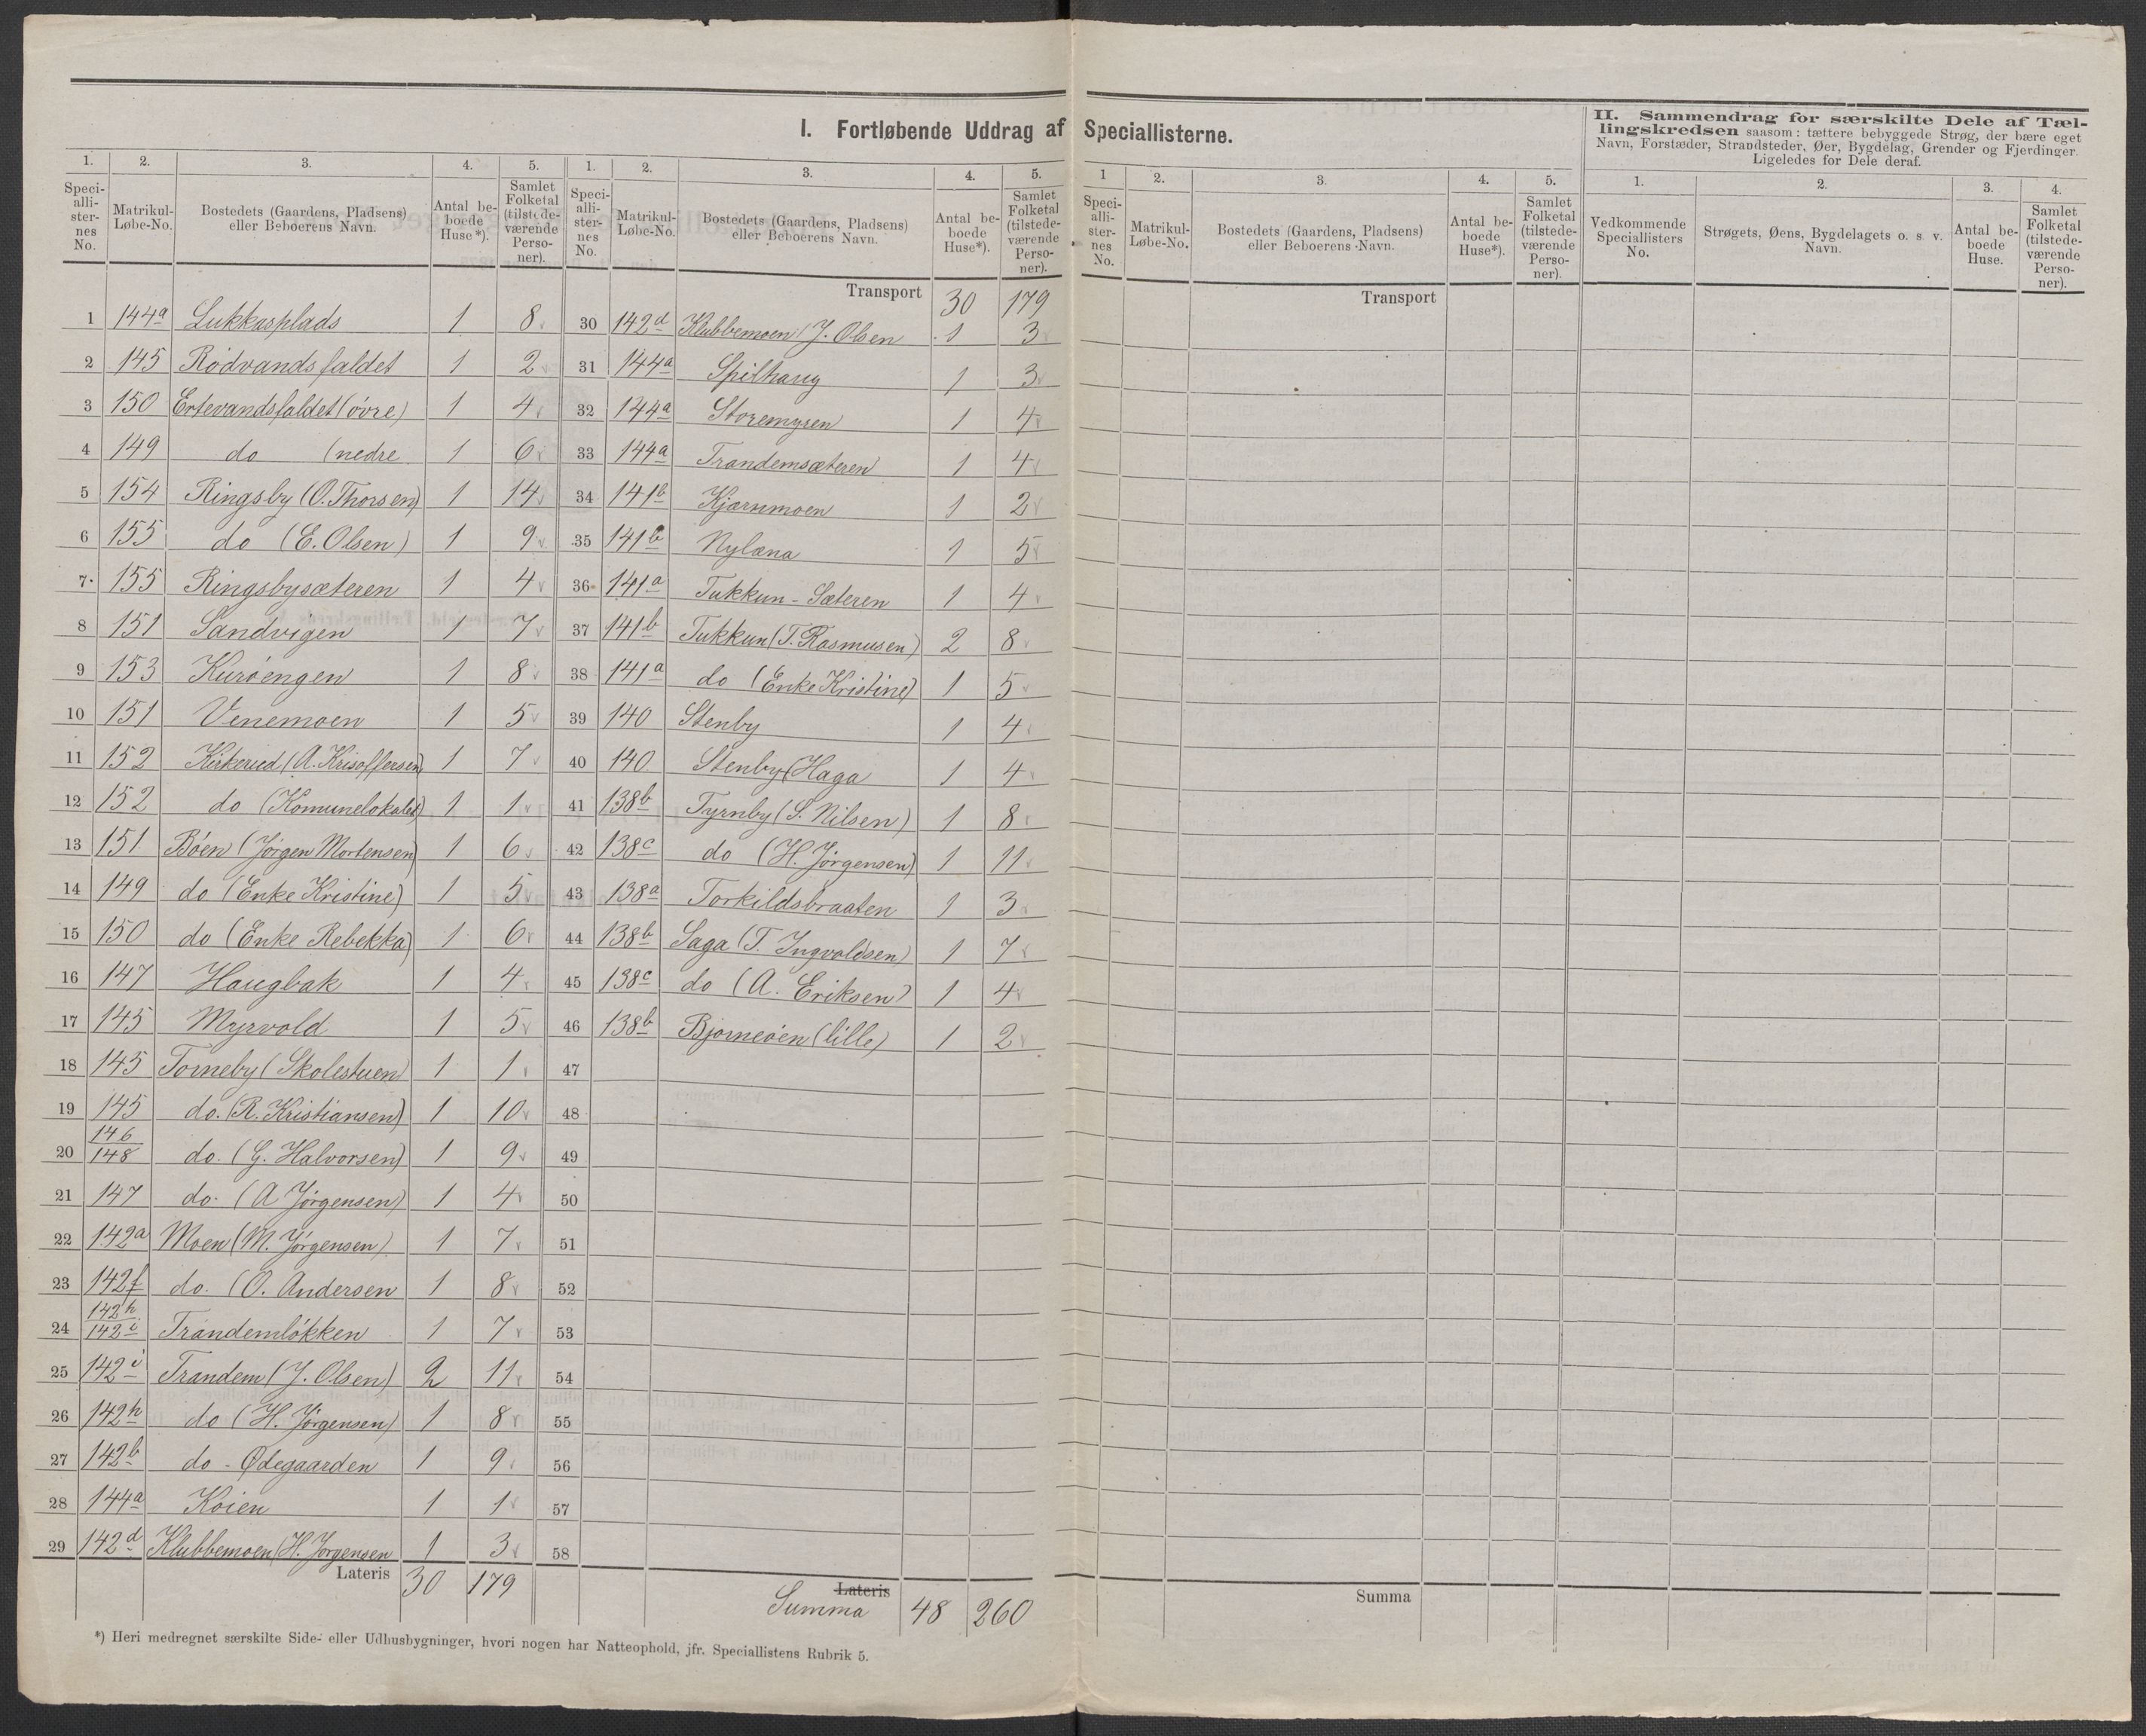 I. Fortløbende Uddrag af Speciallisterne.
1. 2. 3. 4. 5.
Speciallisternes No. Matrikul-Løbe-No. Bostedets (Gaardens, Pladsens) eller Beboerens Navn. Antal beboede Huse*). Samlet Folketal (tilstedeværende Personer).
1 144a Lukkasplads 1 8
2 145 Rödvandsfaldet 1 2
3 150 Ertevandsfaldet (övre) 1 4
4 149 do (nedre 1 6
5 154 Ringsby (O. Thorsen) 1 14
6 155 do (E. Olsen) 1 9
7 155 Ringsbysæteren 1 4
8 151 Sandvigen 1 7
9 153 Kuröengen 1 8
10 151 Venemoen 1 5
11 152 Kirkerud (A. Krisoffersen) 1 7
12 152 do (Komunelokalet) 1 1
13 151 Böen (Jörgen Mortensen) 1 6
14 149 do (Enke Kristine) 1 5
15 150 do (Enke Rebekka) 1 6
16 147 Haugbak 1 4
17 145 Myrvold 1 5
18 145 Torneby (Skolestuen) 1 1
19 145 do. (R. Kristiansen) 1 10
20 146 148 do. (G. Halvorsen) 1 9
21 147 do. (A Jörgensen) 1 4
22 142a Moen (M. Jörgensen) 1 7
23 142f do. (O. Andersen 1 8
24 142h 142i Trandemlökken 1 7
25 142i Trandem (J. Olsen) 2 11
26 142h do (H. Jörgensen) 1 8
27 142b do - Ødegaarden 1 9
28 144a Köien 1 1
29 142d Klubbemoen (H. Jörgensen 1 3
Lateris 30 179
1. 2. 3. 4. 5.
Speciallisternes No. Matrikul-Løbe-No. Bostedets (Gaardens, Pladsens) eller Beboerens Navn. Antal beboede Huse*). Samlet Folketal (tilstedeværende Personer).
Transport 30 179
30 142d Klubbemoen (J. Olsen 1 3
31 144a Spilhaug 1 3
32 144a Storemyren 1 4
33 144a Trandemsæteren 1 4
34 141b Kjærnmoen 1 2
35 141b Nylæna 1 5
36 141a Tukkun-Sæteren 1 4
37 141b Tukkun (T. Rasmusen) 2 8
38 141a do (Enke Kristine) 1 5
39 140 Stenby 1 4
40 140 Stenby (Haga 1 4
41 138b Tyrnby (S. Nilsen) 1 8
42 138c do (H. Jörgensen) 1 11
43 138a Torkildsbraaten 1 3
44 138b Saga (T. Ingvoldsen) 1 7
45 138c do (A. Eriksen) 1 4
46 138b Bjørneöen (lille) 1 2
47
48
49
50
51
52
53
54
55
56
57
58
Lateris
Summa 48 260
*) Heri medregnet særskilte Side- eller Udhusbygninger, hvori nogen har Natteophold, jfr. Speciallistens Rubrik 5.
1 2. 3. 4. 5.
Speciallisternes No. Matrikul-Løbe-No. Bostedets (Gaardens, Pladsens) eller Beboerens Navn. Antal beboede Huse*). Samlet Folketal (tilstedeværende Personer).
Transport
Summa
II. Sammendrag for særskilte Dele af Tæl-
lingskredsen saasom: tættere bebyggede Strøg, der bære eget
Navn, Forstæder, Strandsteder, Øer, Bygdelag, Grender og Fjerdinger.
Ligeledes for Dele deraf.
1. 2. 3. 4.
Vedkommende Speciallisters No. Strøgets, Øens, Bygdelagets o. s. v. Navn. Antal beboede Huse. Samlet Folketal (tilstedeværende Personer).